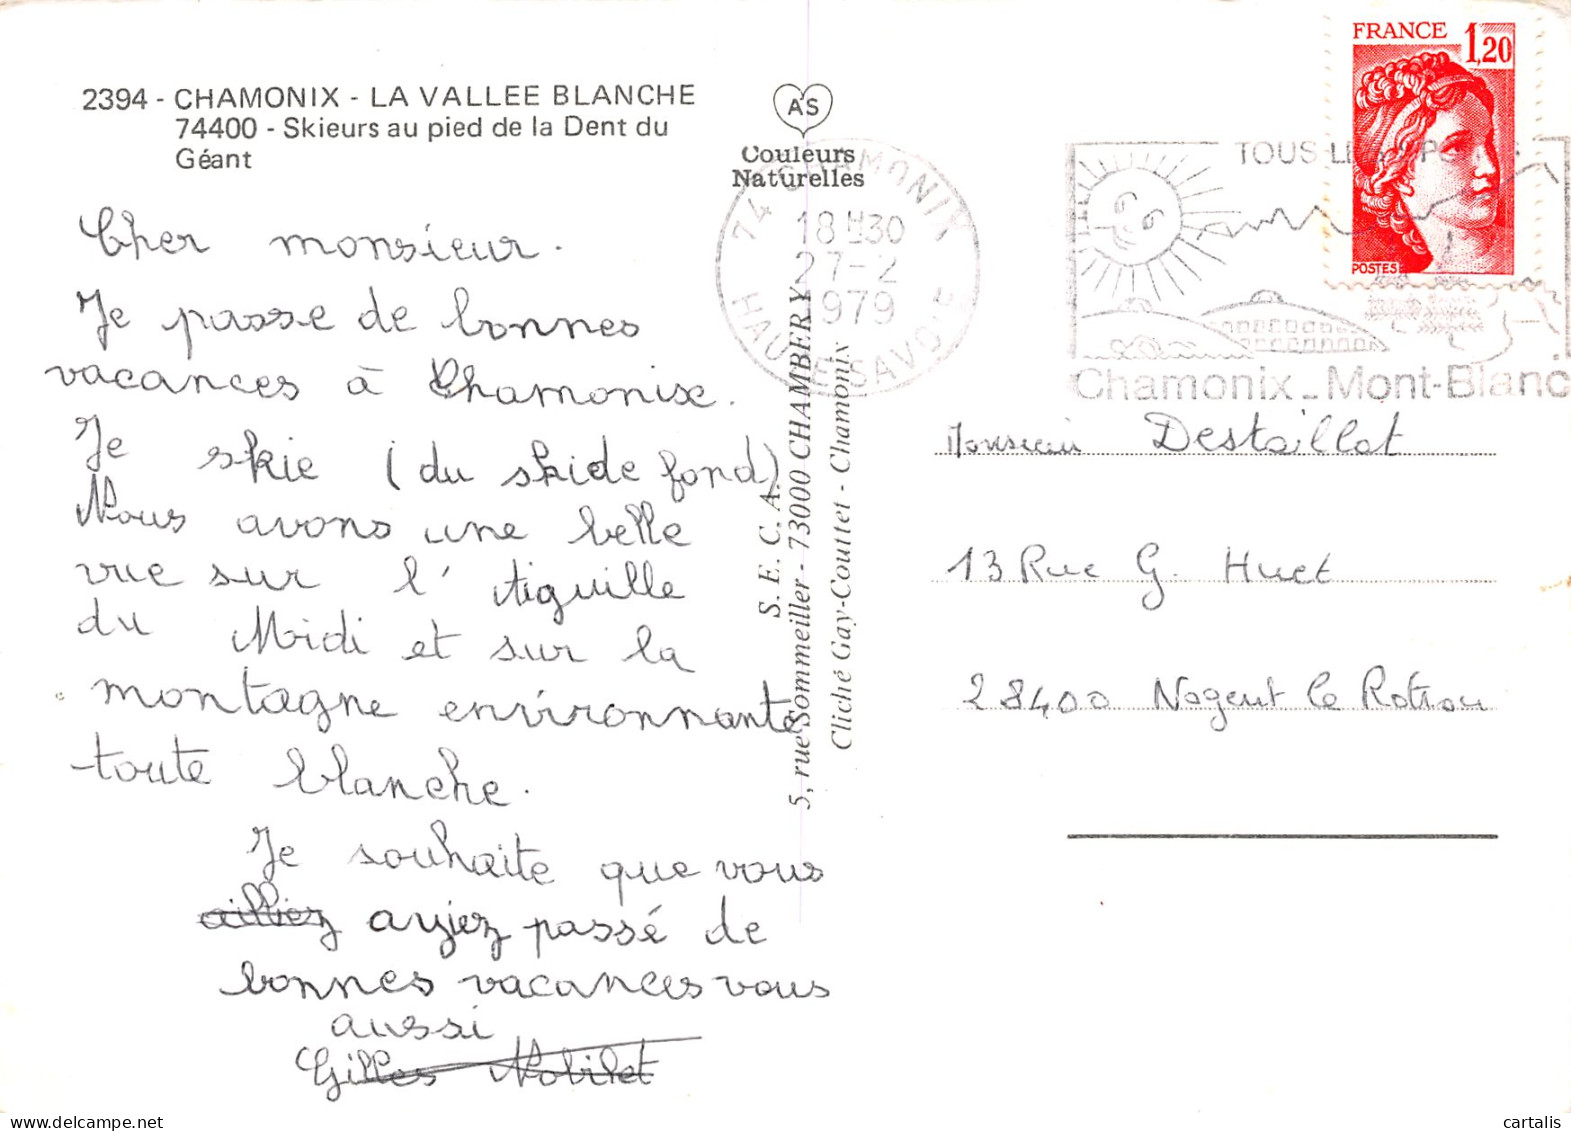 2394 - CHAMONIX - LA VALLEE BLANCHE
74400 - Skieurs au pied de la Dent du
Géant
AS
Couleurs
Naturelles
Cher monsieur.
Je passe de bonnes
vacances à Chamonix.
Je skie (du skide fond)
Nous avons une belle
vue sur l'Aiguille
du Midi et sur la
montagne environnante
toute blanche.
Je souhaite que vous
ailliez ayiez passé de
bonnes vacances vous
aussi
Gilles Nobilet
S. E. C. A.
5, rue Sommeiller - 73000 CHAMBERY
Cliché Gay-Couttet - Chamonix
74 CHAMONIX
18H30
27-2
1979
HAUTE SAVOIE
FRANCE 1,20
POSTES
TOUS LES SPORTS
Chamonix_Mont-Blanc
Monsieur Destaillat
13 Rue G. Huet
28400 Nogent le Rotrou
cartalis